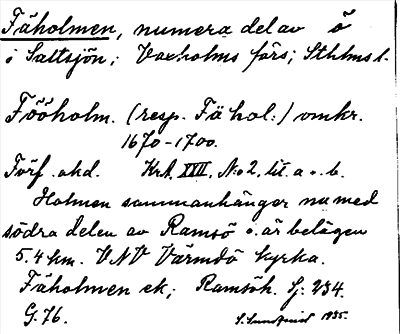 Fäholmen, numera del av ö
i Saltsjön; Vaxholms förs; Sthlms l.
Fööholm. (resp. Fähol:) omkr.
1670-1700.
Förf. okd. Krt. XVII, No 2, lit. a o. b.
Holmen sammanhänger nu med
södra delen av Ramsö o. är belägen
5.4 km. VNV Värmdö kyrka.
Fäholmen ek; Ramsöh. Sj: 234.
G. 76. S. Sundquist 1935.